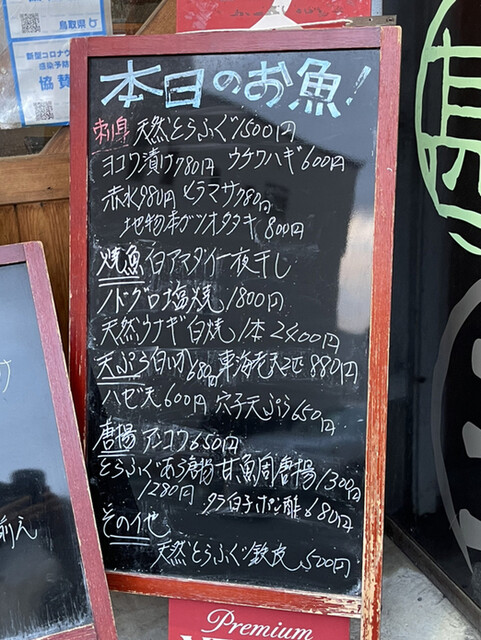 鳥取県
新型コロナウ
感染予防
協賛
本日のお魚!
刺身 天然とらふぐ1500円
ヨコワ漬け780円 ウケワハギ600円
赤水980円 ヒラマサ780円
地物本ガツオタタキ 800円
焼魚 白アマダイ一夜干し
ノドグロ塩焼 1800円
天然ウナギ白焼 1本2400円
天ぷら 白いか680円 車海老天2匹880円
ハゼ天600円 穴子天ぷら650円
唐揚 アンコウ650円
とらふぐあら唐揚 甘鯛唐揚1300円
1280円 タラ白子ポン酢680円
その他
天然とらふぐ鉄皮 500円
揃え
Premium